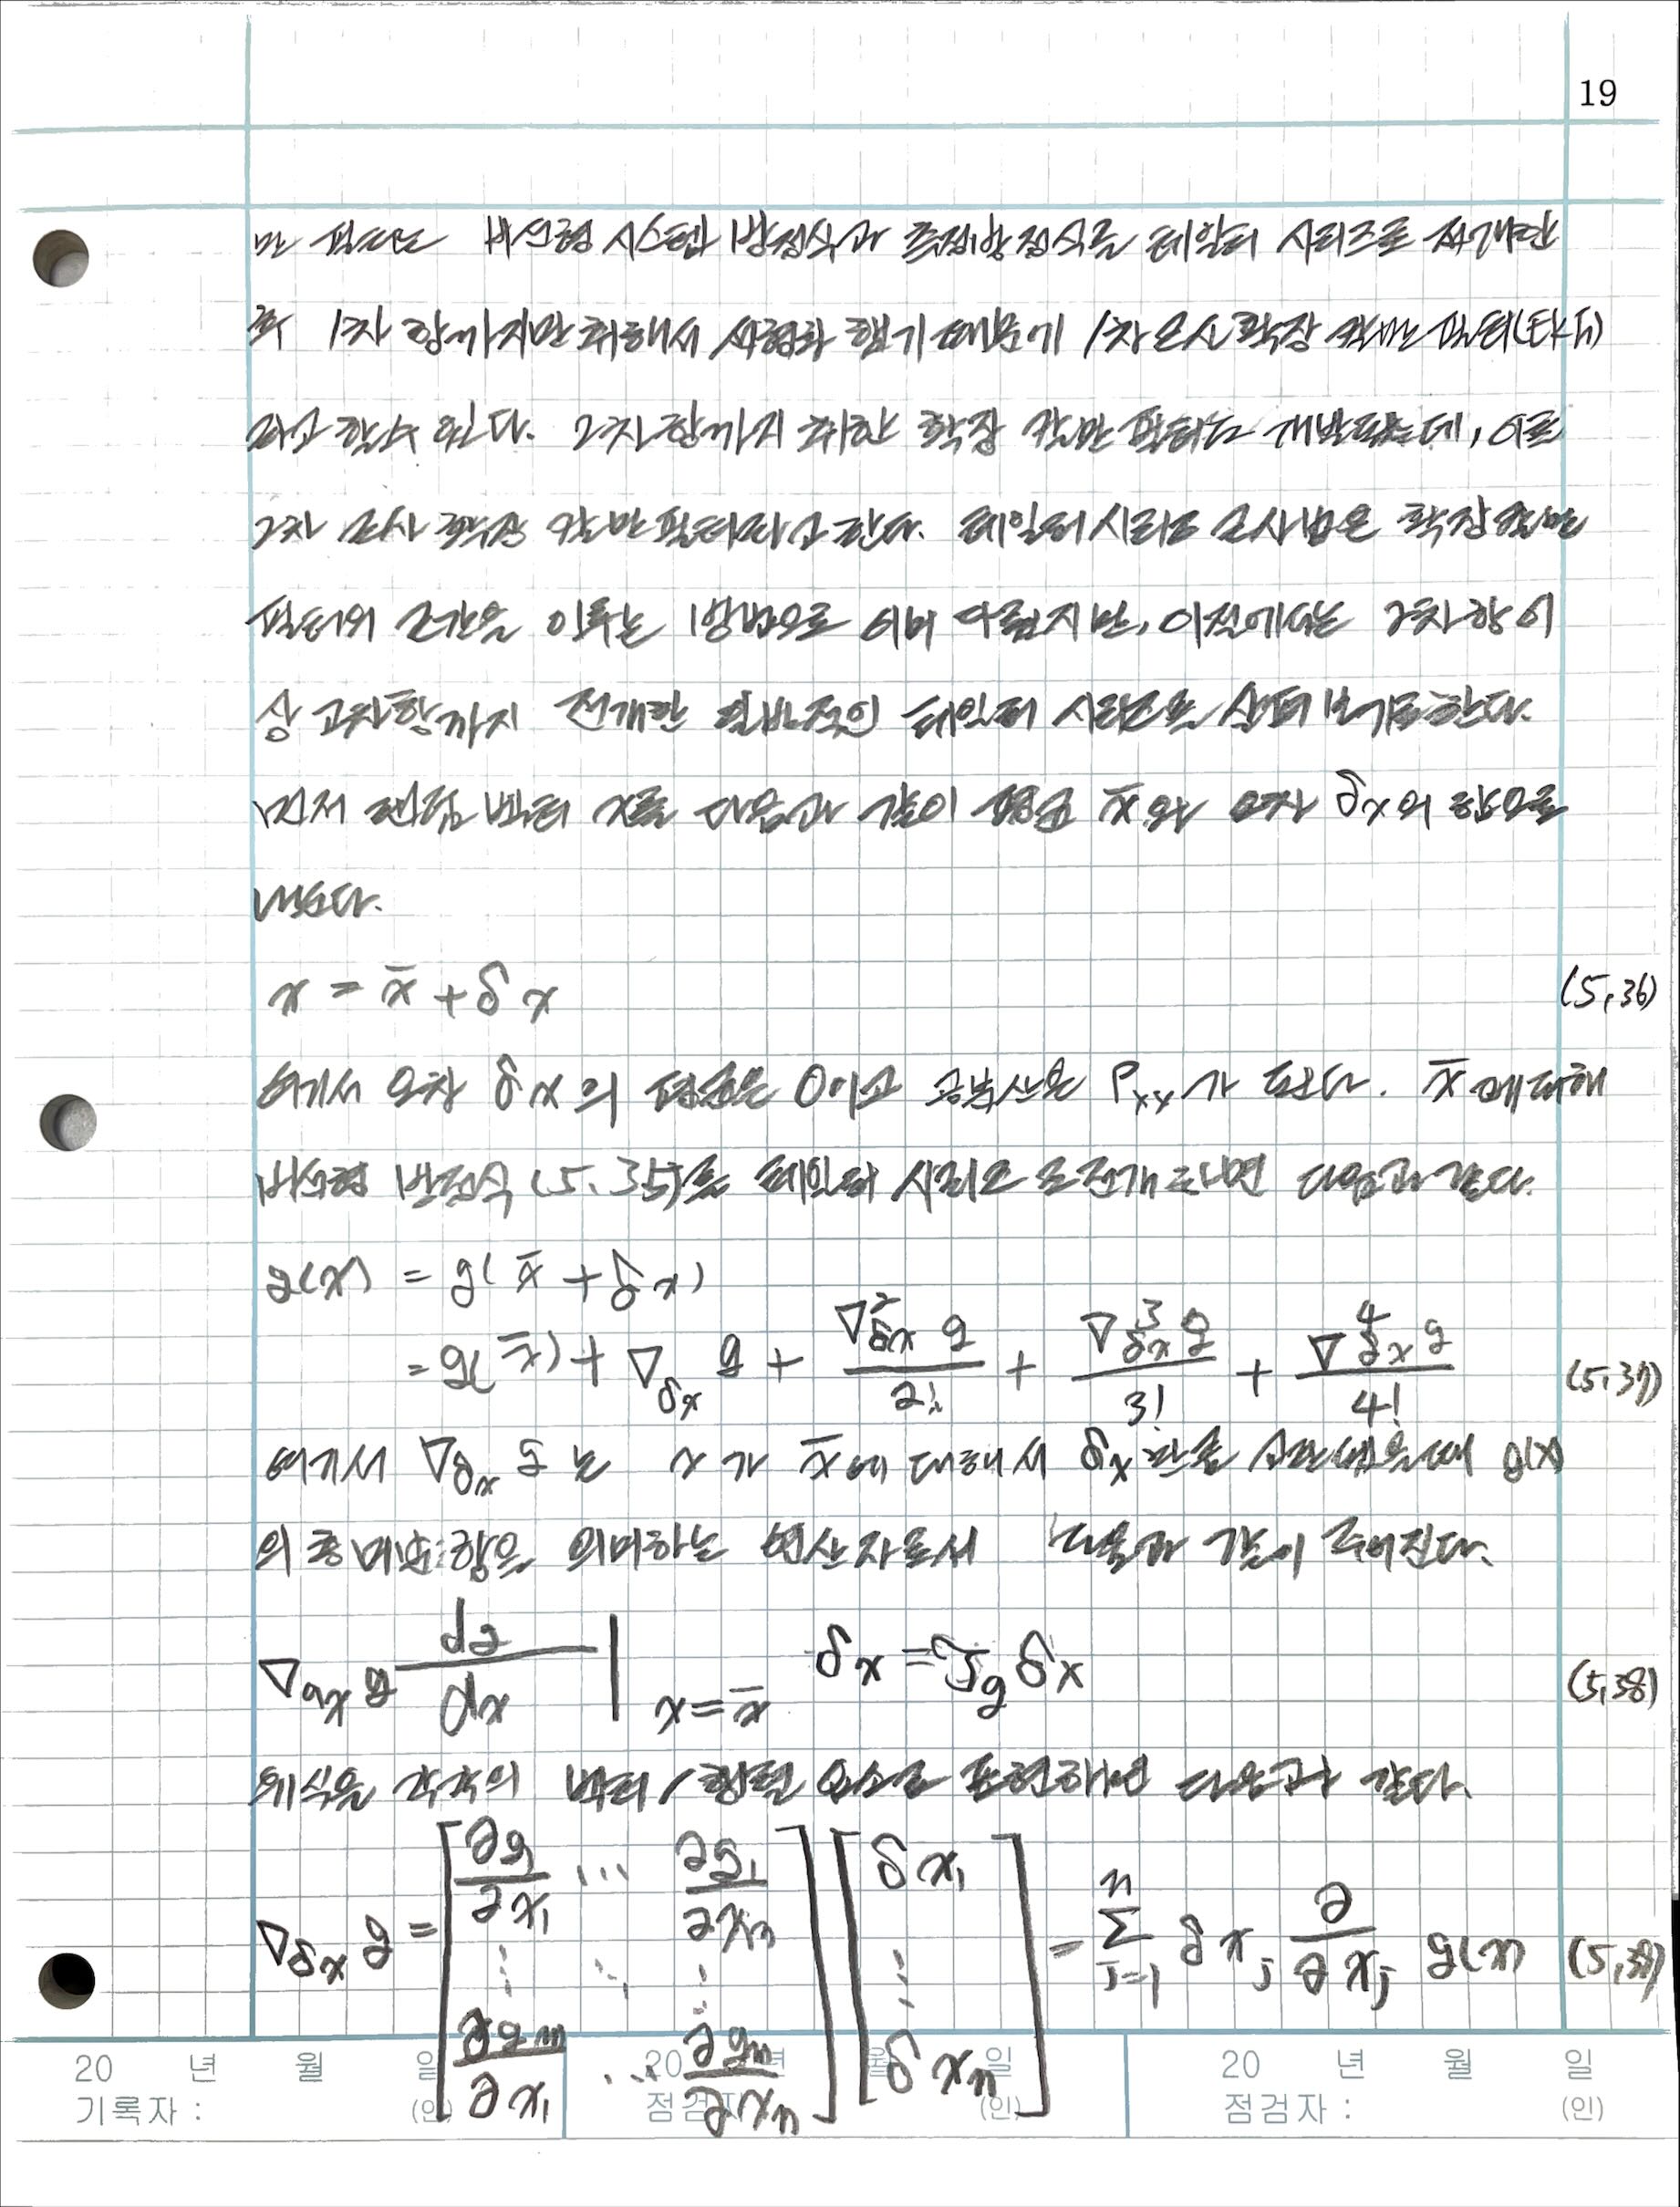 19
만 필터는 비선형 시스템 방정식과 측정방정식을 테일러 시리즈로 전개한
후 1차 항까지만 취해서 선형화 했기 때문에 1차 근사 확장 칼만 필터(EKF)
라고 할 수 있다. 2차항까지 취한 확장 칼만 필터도 개발됐는데, 이를
2차 근사 확장 칼만 필터라고 한다. 테일러 시리즈 근사법은 확장 칼만
필터의 근간을 이루는 방법으로 이미 다뤘지만, 이절에서는 2차항 이
상 고차항까지 전개한 일반적인 테일러 시리즈를 살펴 보기로 한다.
먼저 랜덤 벡터 x를 다음과 같이 평균 x̄와 오차 δx의 합으로
놓는다.
x = x̄ + δx (5.36)
여기서 오차 δx의 평균은 0이고 공분산은 Pxx가 된다. x̄에 대해
비선형 방정식 (5.35)를 테일러 시리즈로 전개하면 다음과 같다.
g(x) = g(x̄ + δx)
= g(x̄) + ∇δx g + ∇²δx g / 2! + ∇³δx g / 3! + ∇⁴δx g / 4! (5.37)
여기서 ∇δx g는 x가 x̄에 대해서 δx만큼 변했을때 g(x)
의 총 미분항을 의미하는 연산자로서 다음과 같이 주어진다.
∇ax g dg/dx | x=x̄ δx = Jg δx (5.38)
위식을 각각의 벡터/행렬 요소로 표현하면 다음과 같다.
∇δx g = [∂g1/∂x1 ... ∂g1/∂xn ⋮ ⋱ ⋮ ∂gm/∂x1 ... ∂gm/∂xn] [δx1 ⋮ δxn] = Σ j=1 n δxj ∂/∂xj g(x) (5.39)
20 년 월 일 20 년 월 일 20 년 월 일
기록자 : (인) 점검자 : (인) 점검자 : (인)